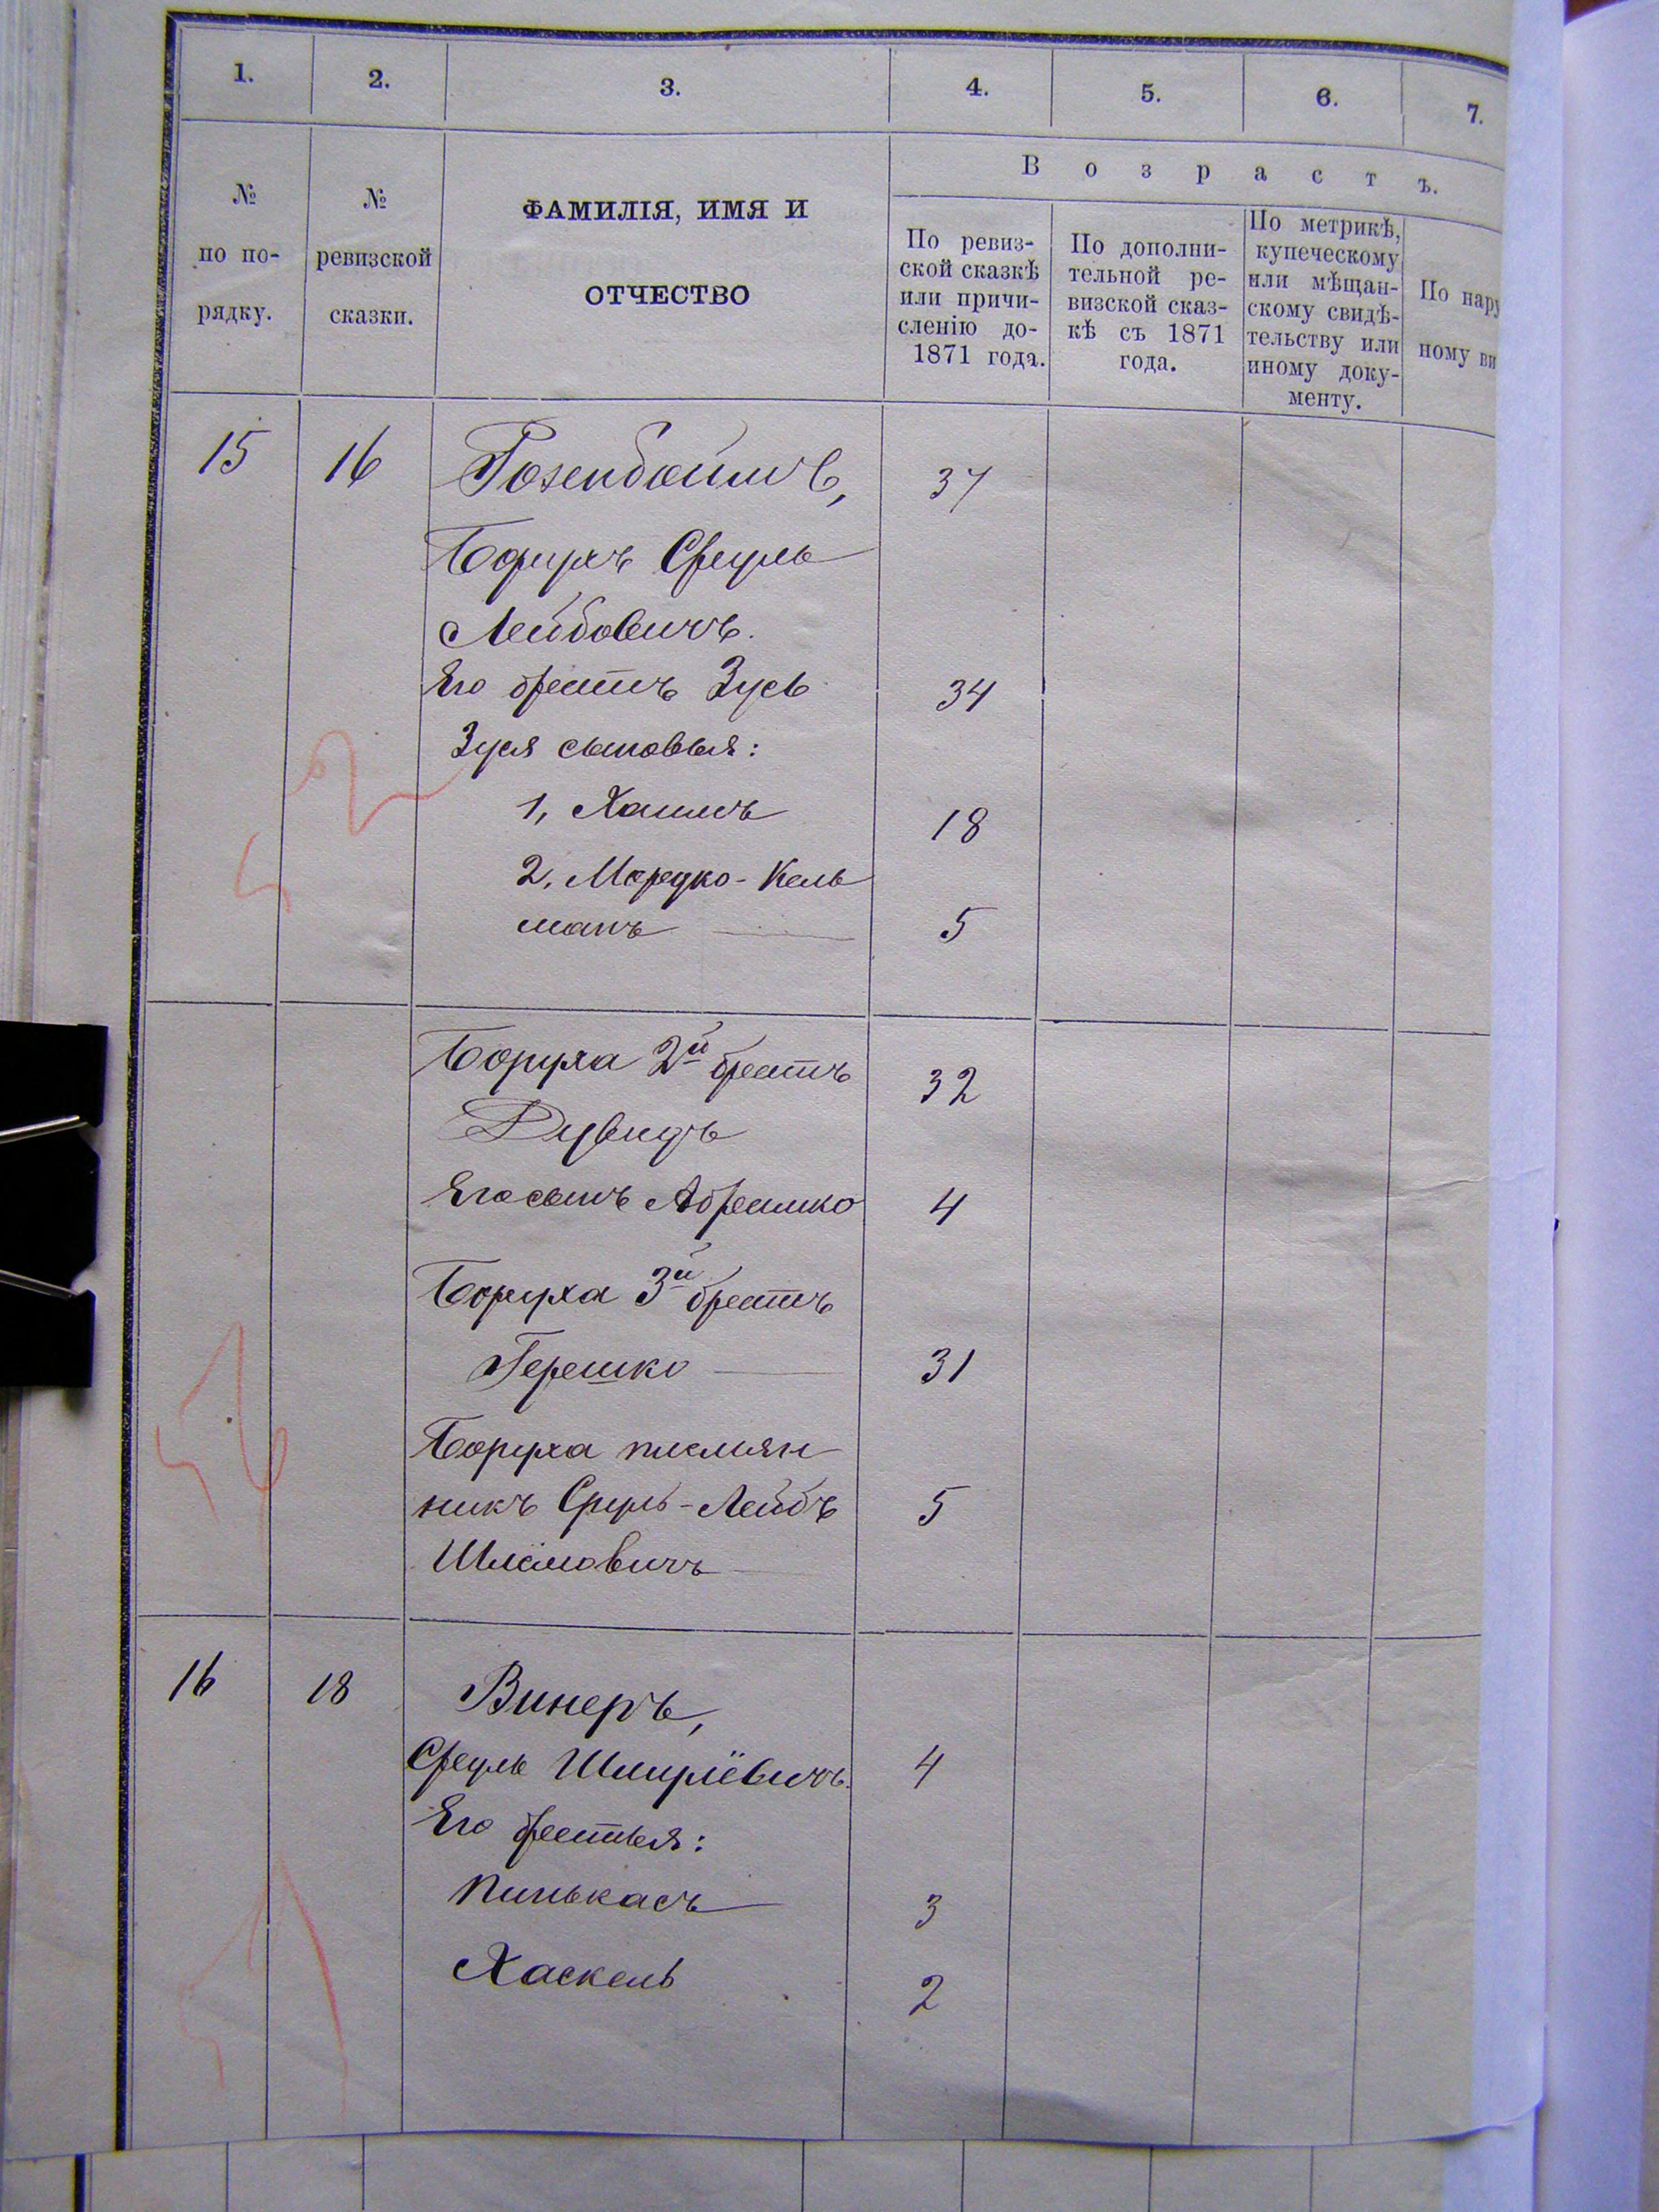 1. 2. 3. 4. 5. 6. 7.
В о з р а с т ъ.
№
по по-
рядку.
№
ревизской
сказки.
ФАМИЛІЯ, ИМЯ И
ОТЧЕСТВО
По ревиз-
ской сказкѣ
или причи-
сленію до-
1871 года.
По дополни-
тельной ре-
визской сказ-
кѣ съ 1871
года.
По метрикѣ,
купеческому
или мѣщан-
скому свидѣ-
тельству или
иному доку-
менту.
По нару
ному ви
15 16 Розенбаимъ, 37
Борухъ Сруль
Лейбовичъ.
Его братъ Зусь 34
Зуся сыновья:
1, Хаимъ 18
2, Мордко-Кель
манъ 5
Боруха 2й братъ 32
Дувидъ
Его сынъ Абрамко 4
Боруха 3й братъ
Гершко 31
Боруха племян
никъ Сруль-Лейбъ 5
Шлёмовичъ
16 18 Винеръ,
Сруль Шмулёвичъ. 4
Его братья:
Пинькасъ 3
Хаскель 2